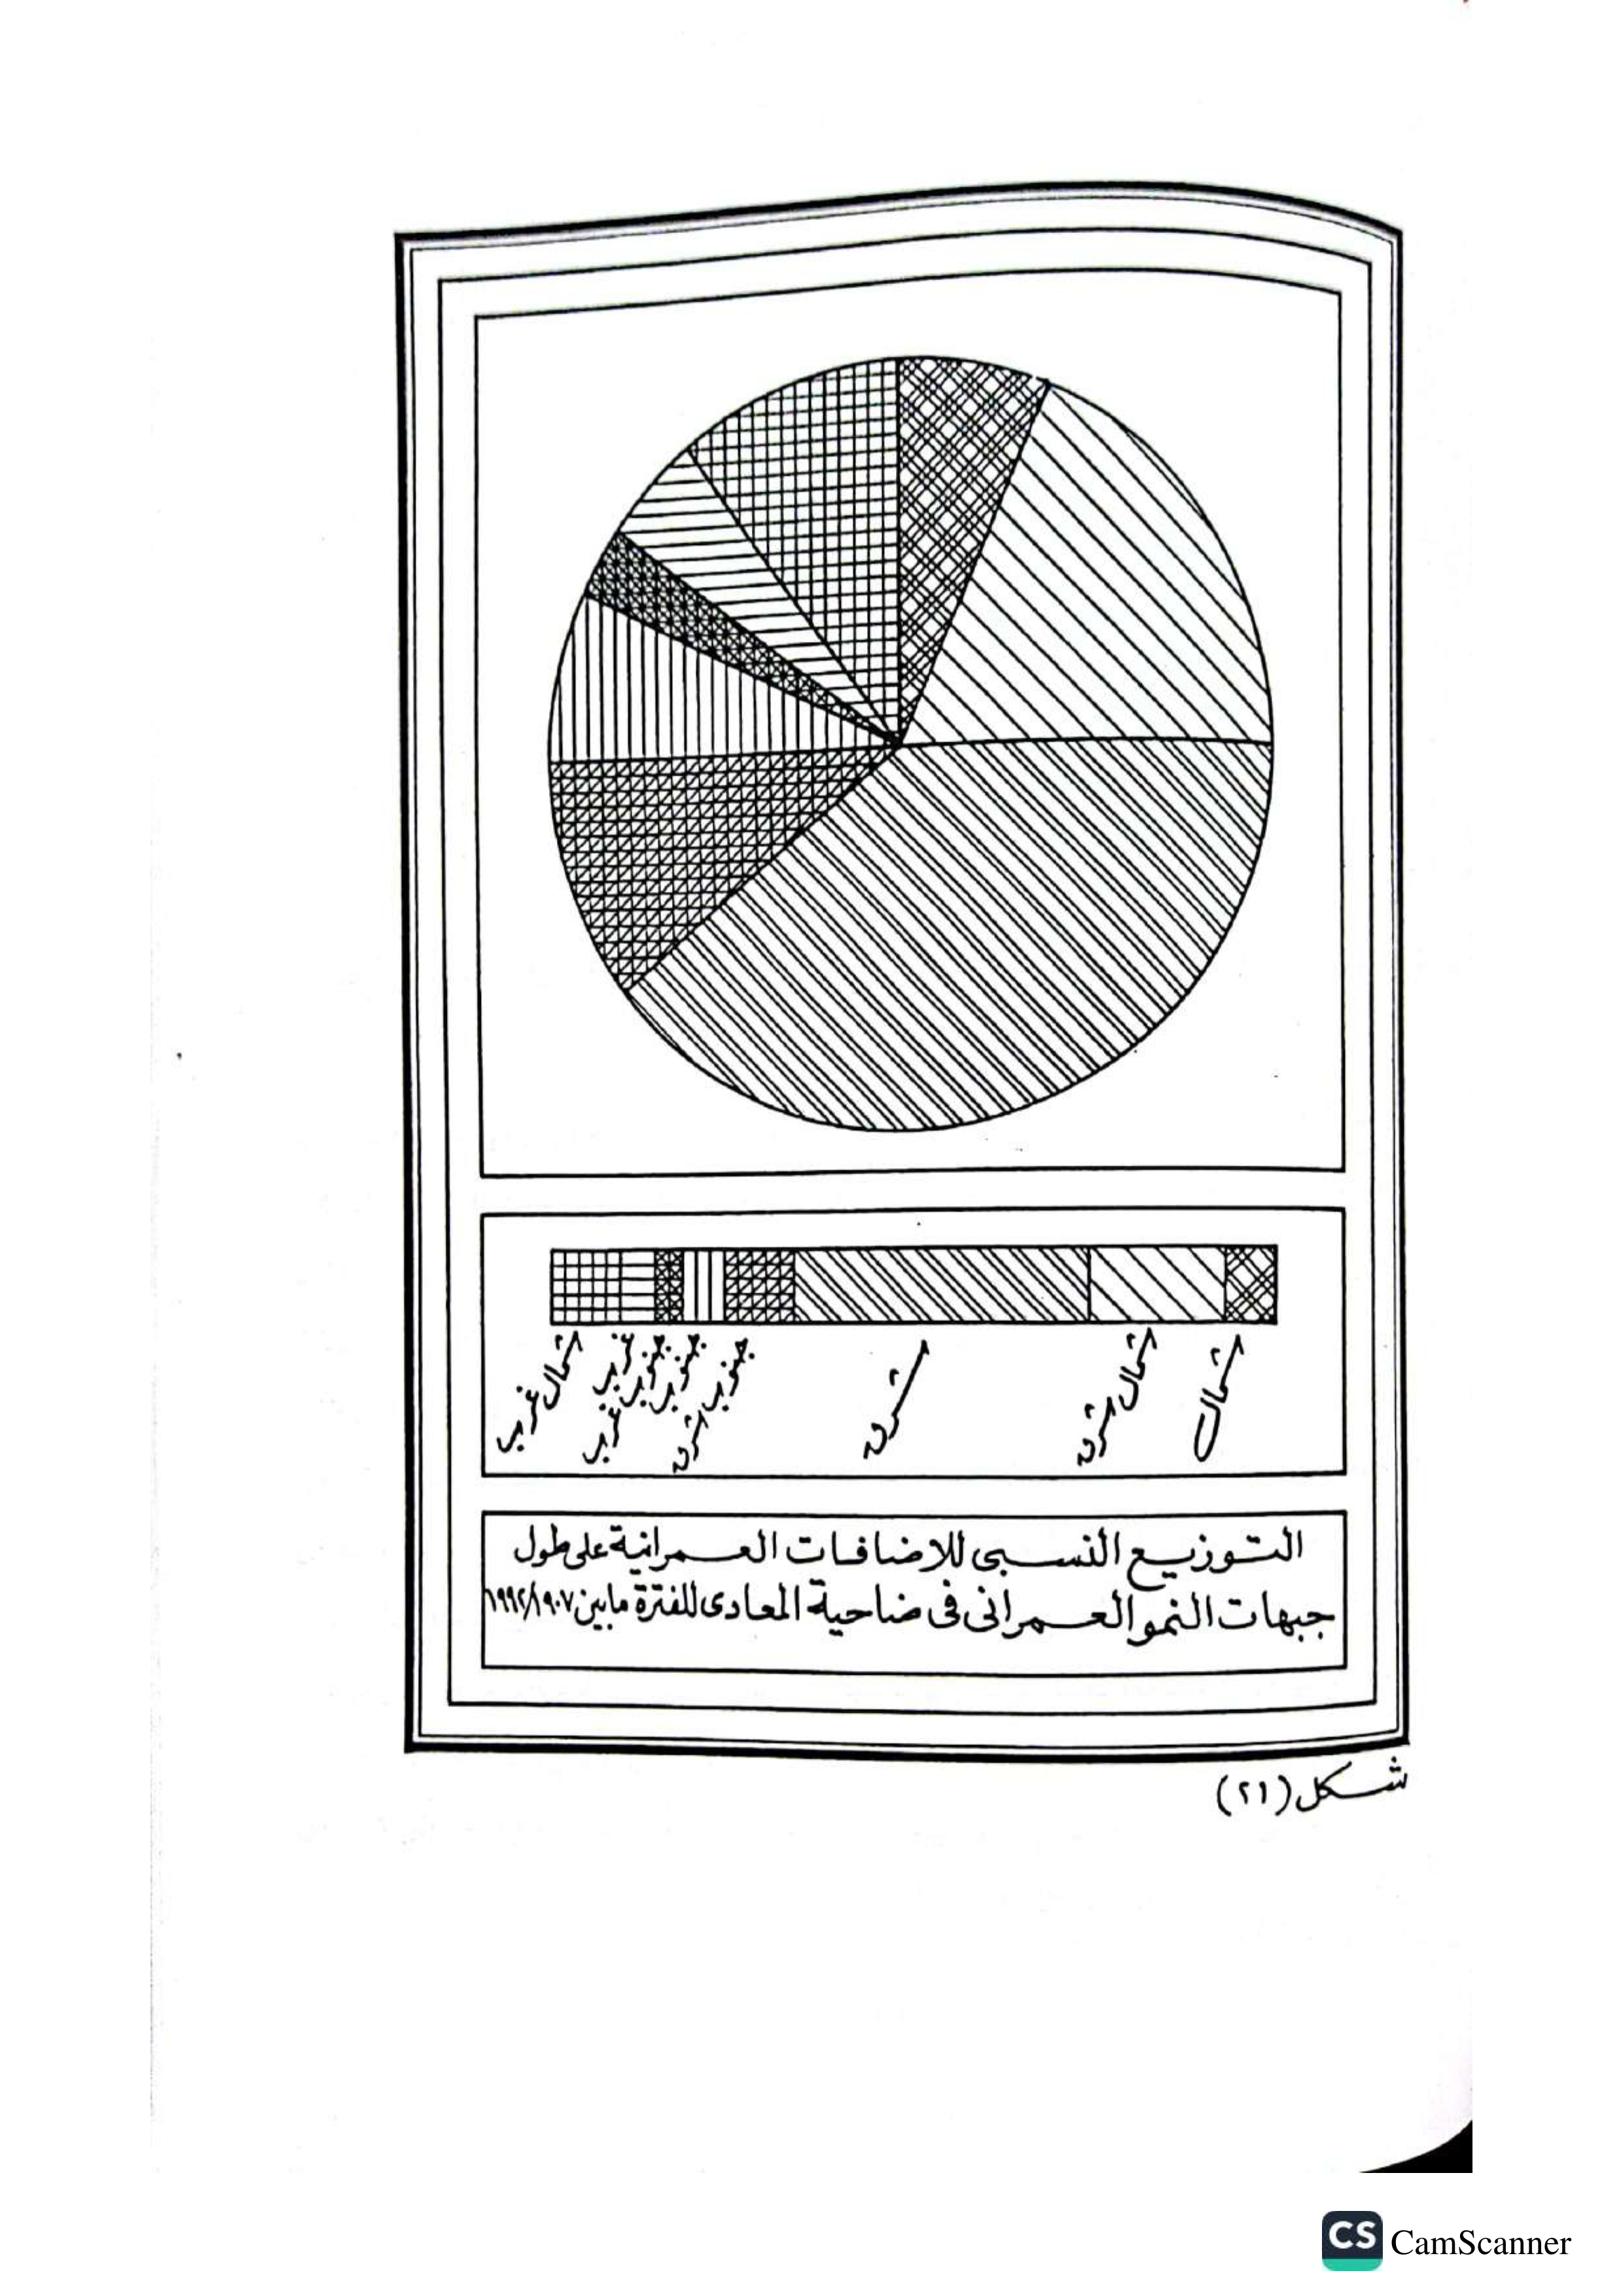 شمال
شمال شرق
شرق
جنوب شرق
جنوب
جنوب غرب
غرب
شمال غرب
التوزيع النسبى للاضافات العمرانية على طول
جبهات النمو العمرانى فى ضاحية المعادى للفترة مابين ١٩٠٧/١٩٩٢
شكل (٢١)
CS CamScanner